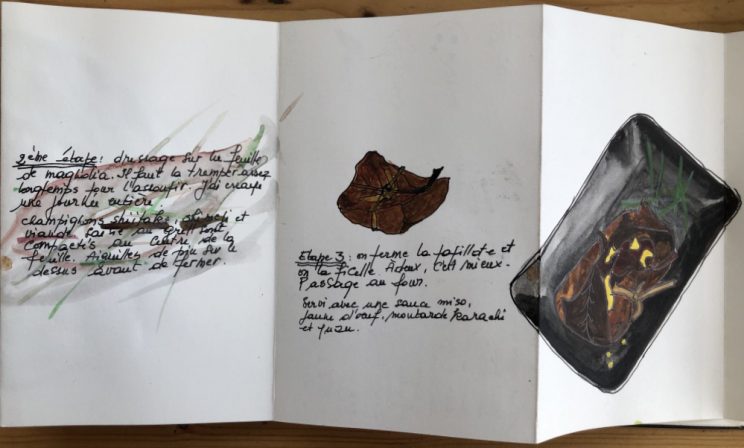 2ème étape : dressage sur la feuille
de magnolia. Il faut la tremper assez
longtemps pour l'assouplir. J'ai essayé
une journée entière
champignons shiitakés, et
viande saisie au grill sont
compactés au centre de la
feuille. Aiguilles de pin sur le
dessus avant de fermer.
Etape 3 : on ferme la papillote et
on la ficelle. A deux, c'est mieux.
Passage au four.
Servi avec une sauce miso,
jaune d'oeuf, moutarde Karachi
et yuzu.